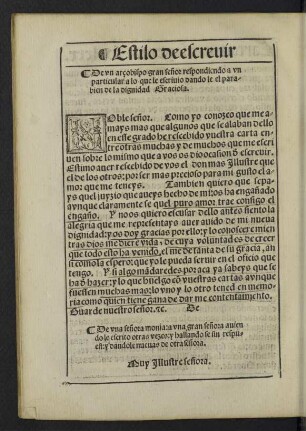 Estilo de escreuir
¶ De vn arçobispo gran señor respondiendo a vn
particular a lo que le escriuio dando le el para-
bien de la dignidad Graciosa.
Noble señor. Como yo conozco que me a-
mays mas que algunos que se alaban dello
en este grado he rescebido vuestra carta en-
tre otras muchas y de muchos que me escri-
uen sobre lo mismo que a vos os dio ocasion d̃ escreuir.
Estimo auer rescebido de vos el don mas Illustre que
el de los otros: por ser mas precioso para mi gusto el a-
mor que me teneys. Tambien quiero que sepa-
ys quel juyzio que aueys hecho de mi os ha engañado
avnque claramente se que puro amor trae consigo el
engaño. Y no os quiero escusar dello antes ficto la
alegria que me representays auer auido de mi nueua
dignidad: y os doy gracias por ello: y lo conoscere mien
tras dios me diere vida, de cuya voluntad es de creer
que todo esto ha venido, el me de tanta de su gracia, als
si como la espero: que le pueda seruir en el oficio que
tengo. Y si algo mãdaredes por aca ya sabeys que se
ha d̃ hazer: y lo que huelgo cõ vuestras cartas avnque
fuessen muchas mas: lo vno y lo otro tened en memo-
ria como quien tiene gana de dar me contentamiento.
Guarde nuestro señor. ⁊c. De
¶ De vna señora monja: a vna gran señora auien
do le escrito otras vezes: y hallando se sin respue-
sta: y dandole nueuas de otra señora.
Muy Illustre señora.